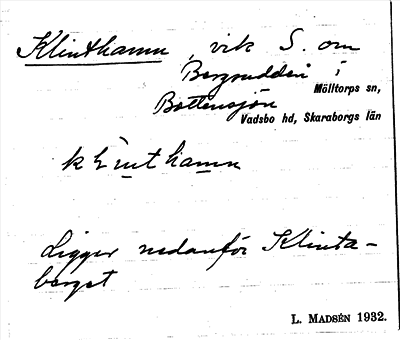 Klinthamn, vik S. om
Bergudden i
Mölltorps sn,
Bottensjön
Vadsbo hd, Skaraborgs län
klinthamn
Ligger nedanför Klinta-
berget
L. MADSÉN 1932.